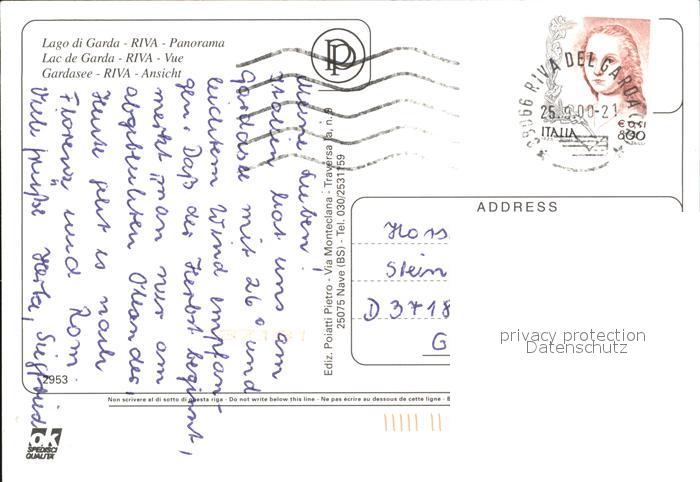 Lago di Garda - RIVA - Panorama
Lac de Garda - RIVA - Vue
Gardasee - RIVA - Ansicht
PP
38066 RIVA DEL GARDA
25.9.00-21
ITALIA
800
Meine Lieben!
Italien hat uns am
Gardasee mit 26° und
leichtem Wind empfan-
gen. Daß der Herbst beginnt,
merkt man nur am
abgeblühten Oleander.
Heute geht es nach
Florenz und Rom.
Viele Grüße Herta, Siegfried
Ediz. Poiatti Pietro - Via Monteclana - Traversa 1a, n. 9
25075 Nave (BS) - Tel. 030/2531159
ADDRESS
Stein
D 3718
G
privacy protection
Datenschutz
2953
Non scrivere al di sotto di questa riga - Do not write below this line - Ne pas écrire au dessous de cette ligne -
ok
SPEDISCI
QUALITÀ